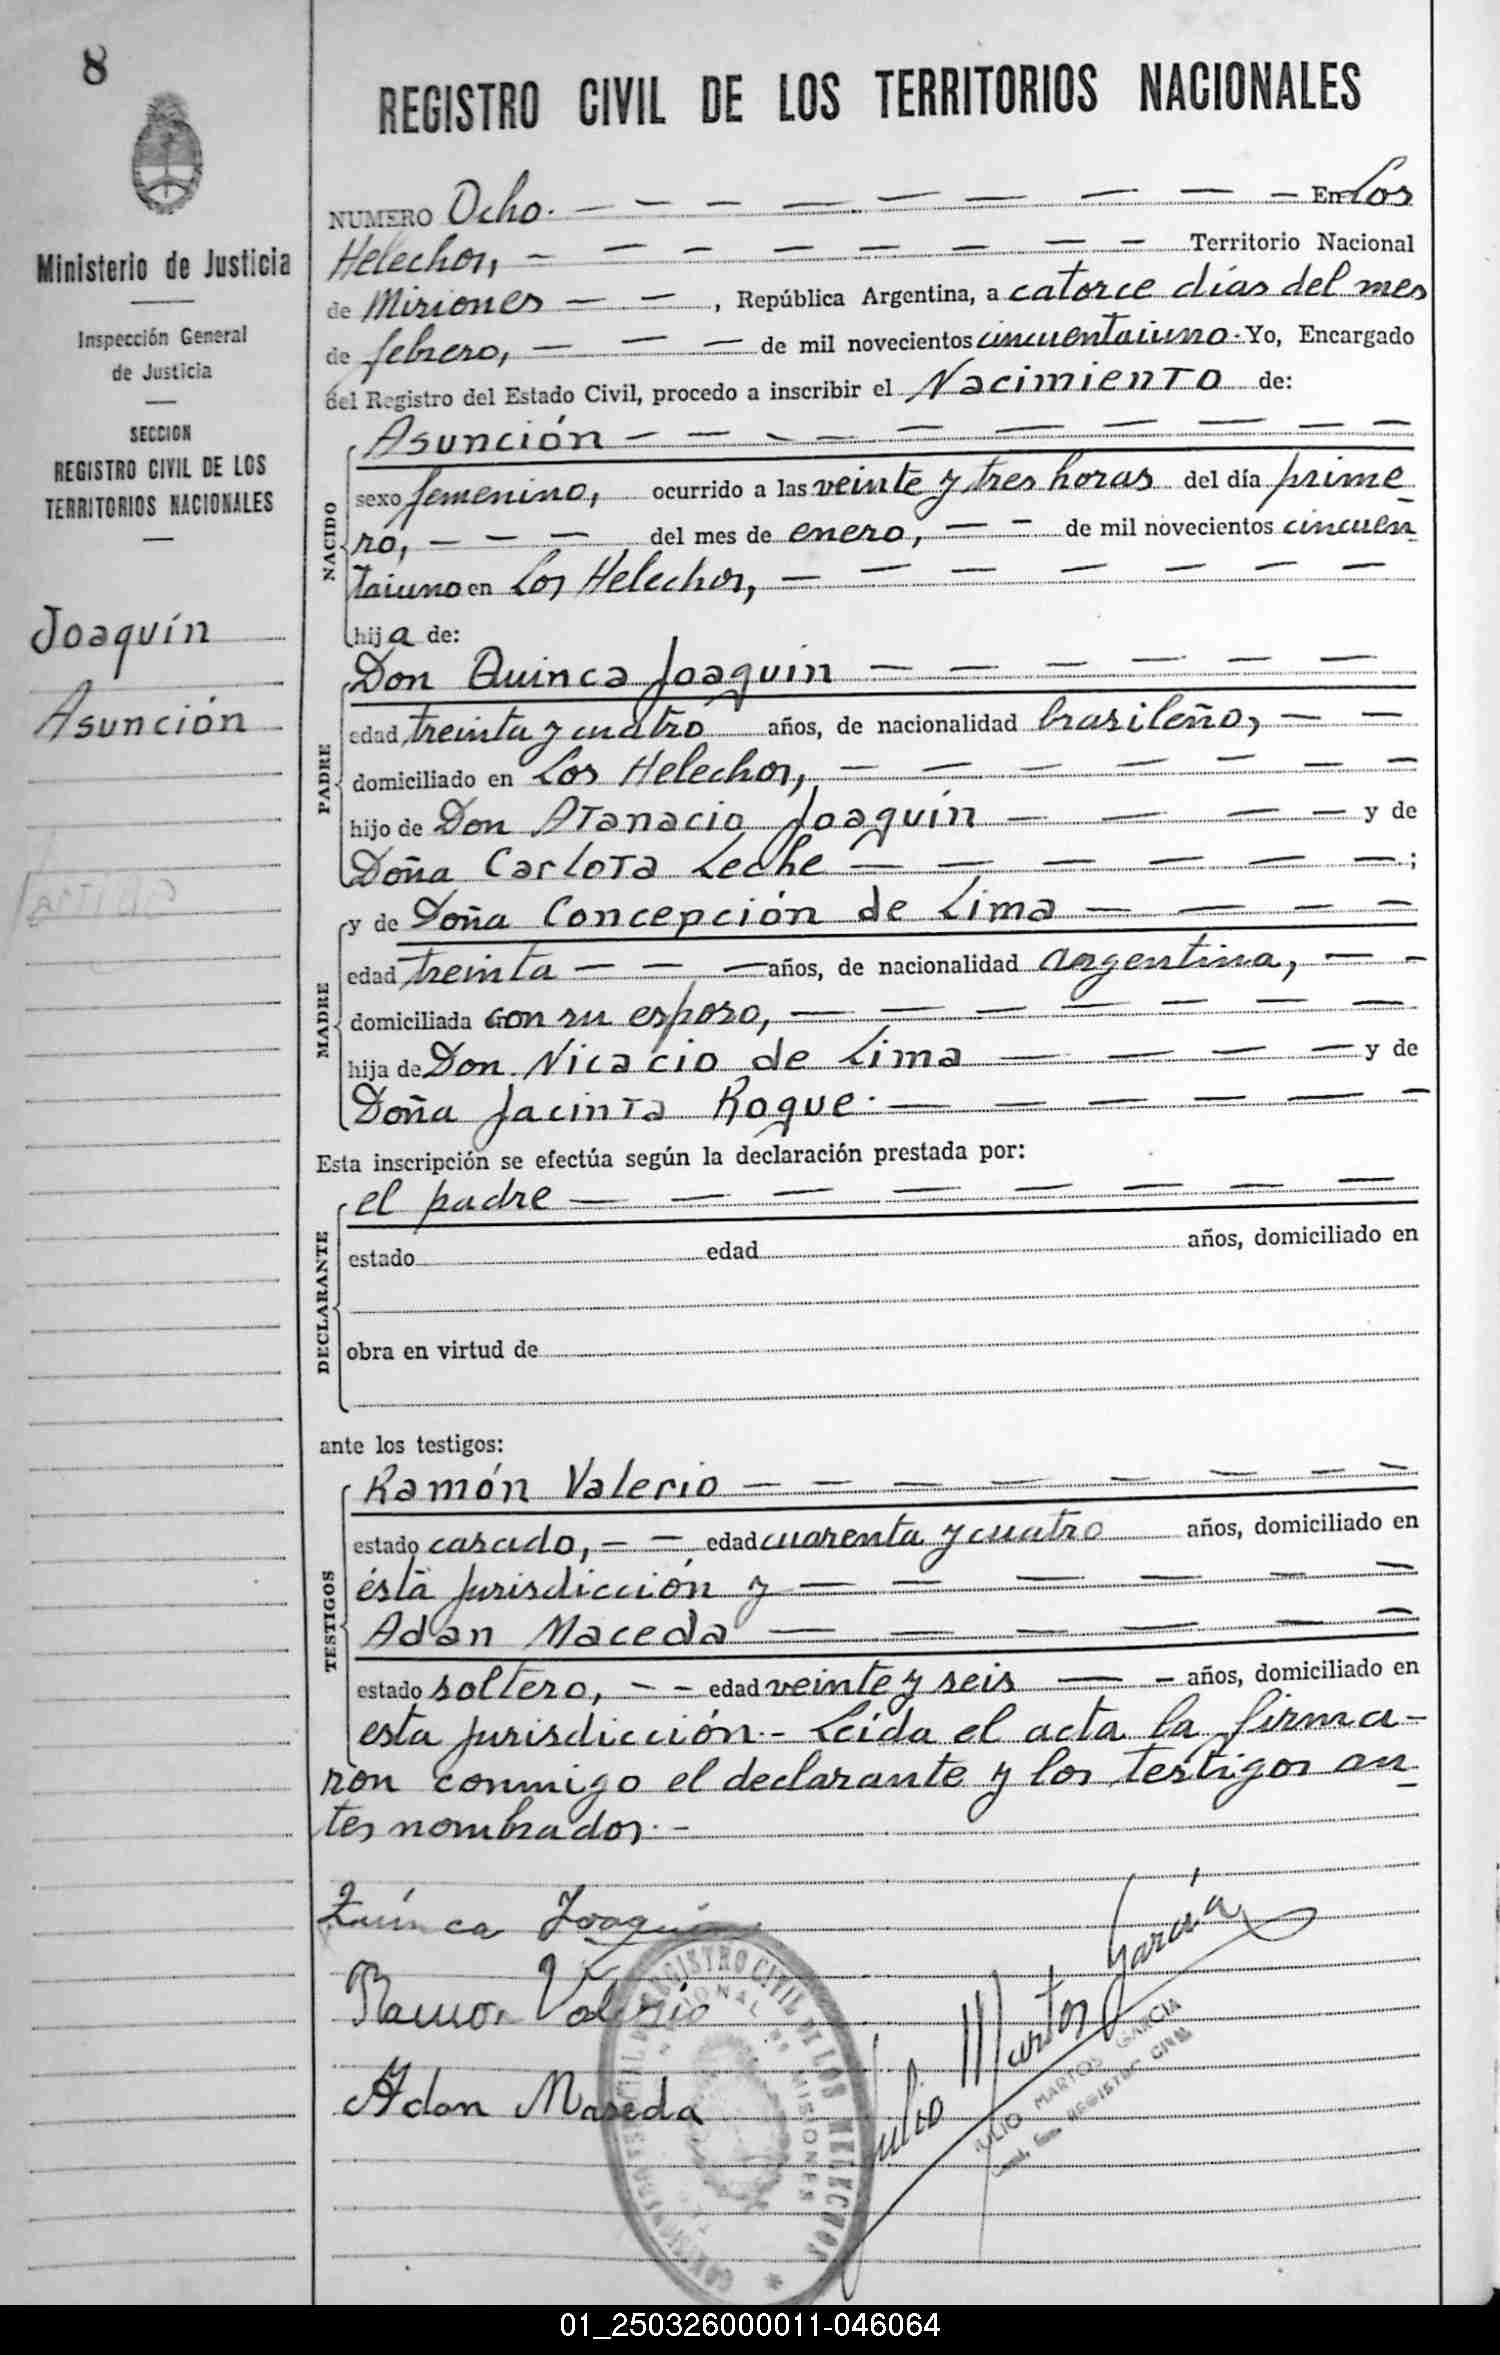 8
Ministerio de Justicia
Inspección General
de Justicia
SECCION
REGISTRO CIVIL DE LOS
TERRITORIOS NACIONALES
Joaquín
Asunción
REGISTRO CIVIL DE LOS TERRITORIOS NACIONALES
NUMERO Ocho. — — — — — — — — — En Los
Helechos, — — — — — — — — Territorio Nacional
de Misiones — — , República Argentina, a catorce días del mes
de febrero, — — — de mil novecientos cincuentaiuno. Yo, Encargado
del Registro del Estado Civil, procedo a inscribir el Nacimiento de:
NACIDO
Asunción — — — — — — — — — —
sexo femenino, ocurrido a las veinte y tres horas del día prime-
ro, — — — del mes de enero, — — de mil novecientos cincuen-
taiuno en Los Helechos, — — — — — — —
hija de:
PADRE
Don Quinca Joaquin — — — — — —
edad treinta y cuatro años, de nacionalidad brasileño, — —
domiciliado en Los Helechos, — — — — — — —
hijo de Don Atanacio Joaquín — — — — y de
Doña Carlota Leche — — — — — — ;
MADRE
y de Doña Concepción de Lima — — — —
edad treinta — — — años, de nacionalidad argentina, — —
domiciliada con su esposo, — — — — — — —
hija de Don Nicacio de Lima — — — — y de
Doña Jacinta Roque. — — — — — —
Esta inscripción se efectúa según la declaración prestada por:
DECLARANTE
el padre — — — — — — — —
estado edad años, domiciliado en
obra en virtud de
ante los testigos:
TESTIGOS
Ramón Valerio — — — — — — — —
estado casado, — — edad cuarenta y cuatro años, domiciliado en
ésta jurisdicción y — — — — — —
Adan Maceda — — — — — —
estado soltero, — — edad veinte y seis — — años, domiciliado en
esta jurisdicción.- Leída el acta la firma-
ron conmigo el declarante y los testigos an-
tes nombrados.-
Quinca Joaquin
Ramon Valerio
Adan Maseda
Julio Martos García
JULIO MARTOS GARCIA
REGISTRO CIVIL DE LOS HELECHOS
MISIONES
01_250326000011-046064